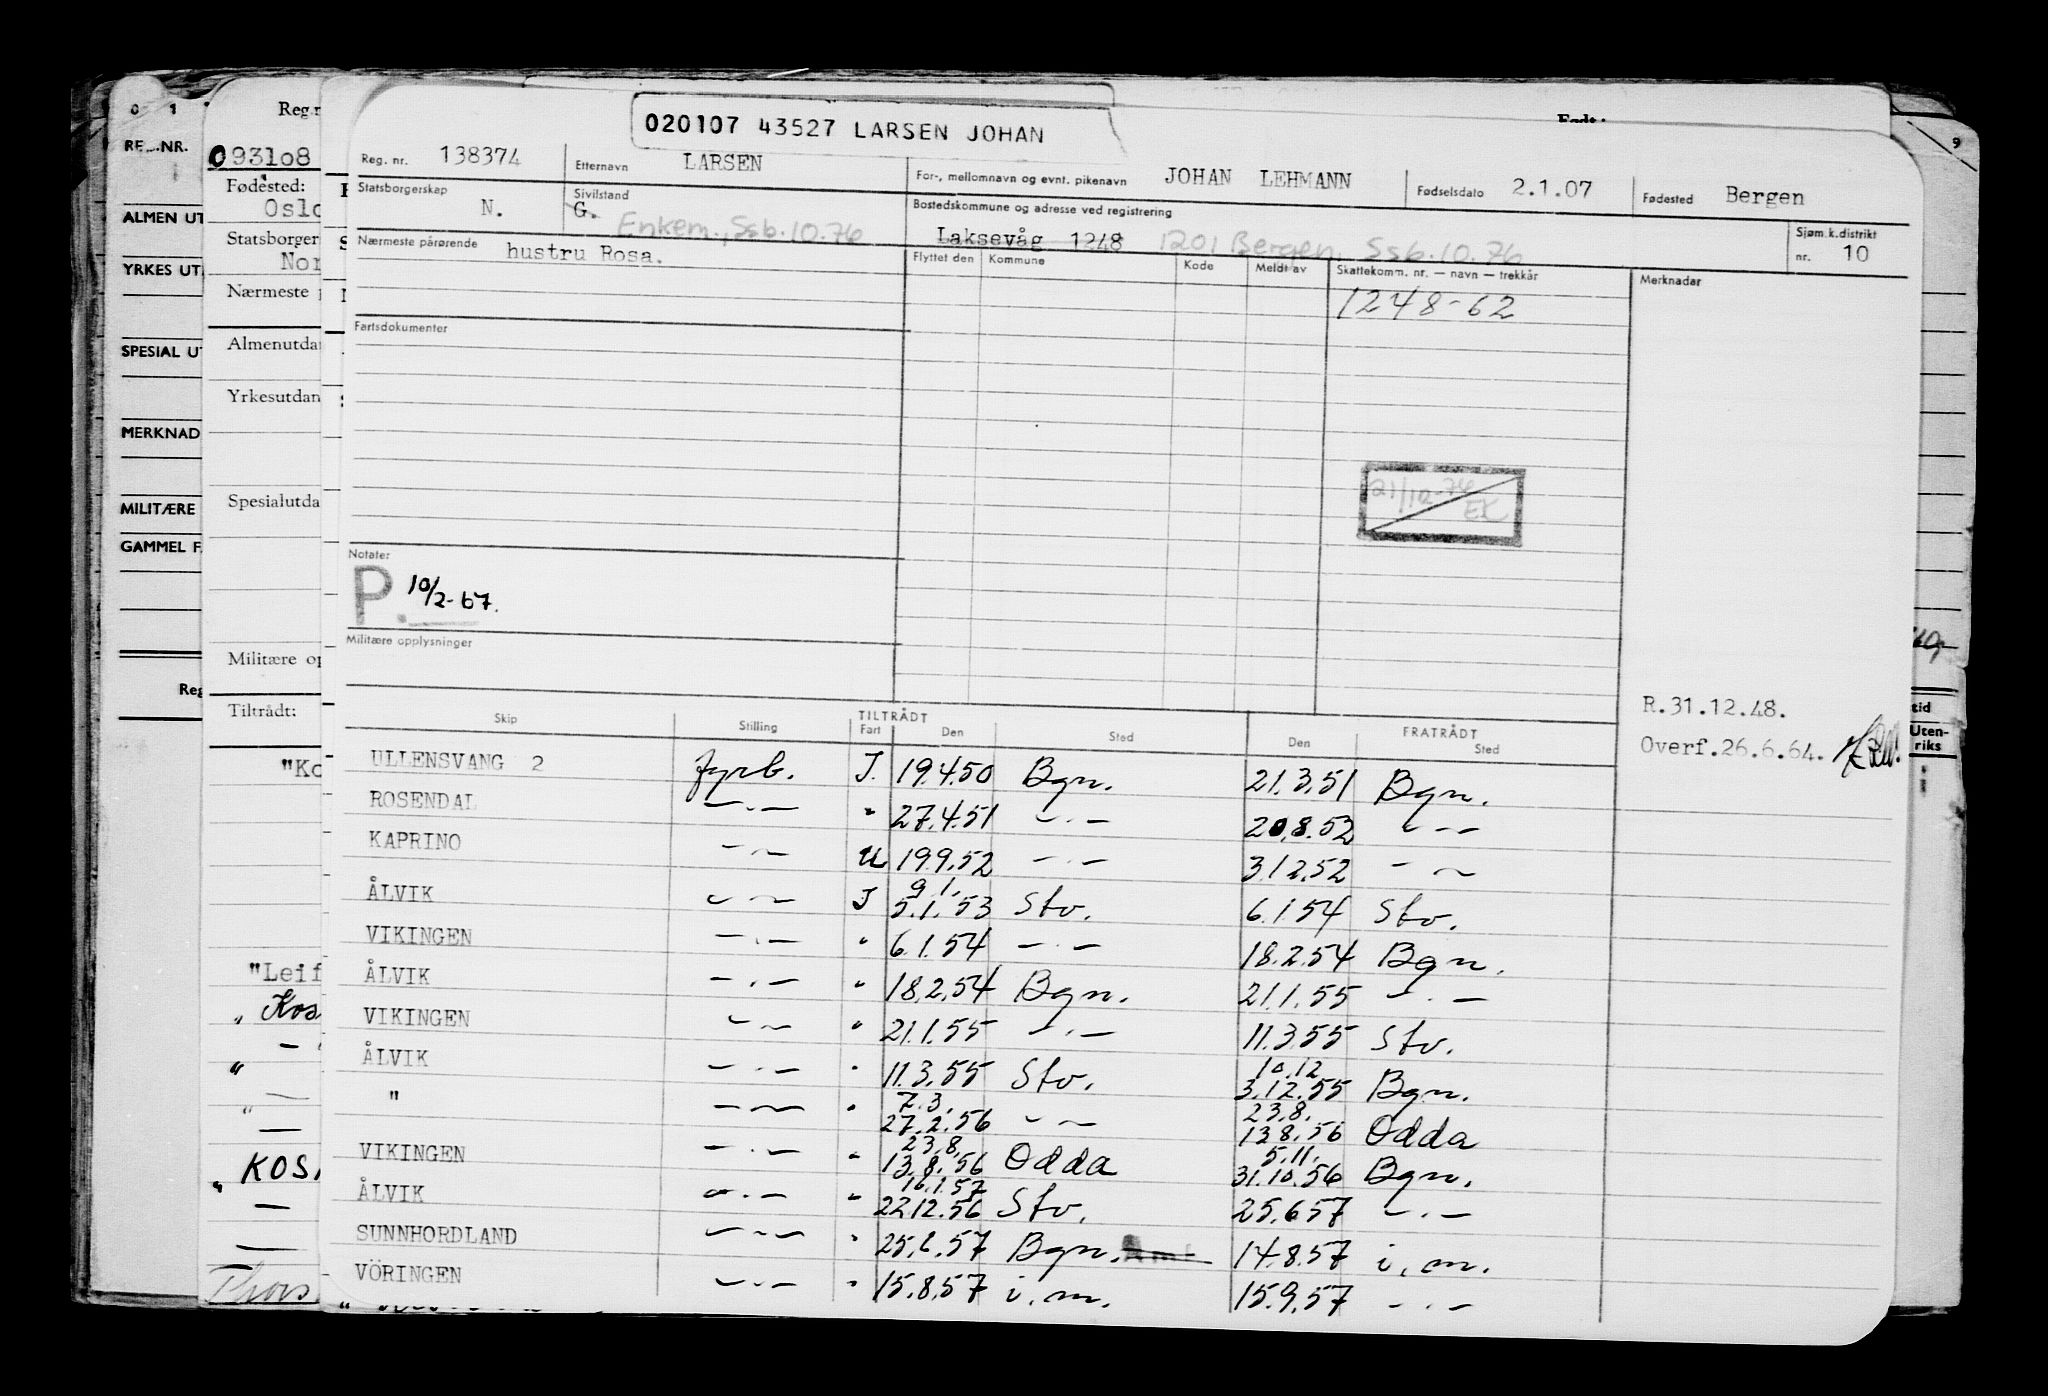 020107 43527 LARSEN JOHAN
Reg. nr. 138374 Etternavn LARSEN For-, mellomnavn og evnt. pikenavn JOHAN LEHMANN Fødselsdato 2.1.07 Fødested Bergen
Statsborgerskap N. Sivilstand G. Enkem., Ssb.10.76 Bostedskommune og adresse ved registrering Laksevåg 1248 1201 Bergen, Ssb.10.76 Sjøm.k.distrikt nr. 10
Nærmeste pårørende hustru Rosa. Flyttet den Kommune Kode Meldt av Skattekomm. nr. — navn — trekkår Merknader
1248-62
Fartsdokumenter
21/12-76 EK
Notater
P. 10/2-67.
Militære opplysninger
R.31.12.48.
Overf.26.6.64.
TILTRÅDT FRATRÅDT
Skip Stilling Fart Den Sted Den Sted
ULLENSVANG 2 fyrb. I. 19.4.50 Bgn. 21.3.51 Bgn.
ROSENDAL —.— " 27.4.51 —.— 20.8.52 —.—
KAPRINO —.— U 19.9.52 —.— 3.12.52 —.—
9.1.
ÅLVIK —.— I 5.1.53 Stv. 6.1.54 Stv.
VIKINGEN —.— " 6.1.54 —.— 18.2.54 Bgn.
ÅLVIK —.— " 18.2.54 Bgn. 21.1.55 —.—
VIKINGEN —.— " 21.1.55 —.— 11.3.55 Stv.
10.12
ÅLVIK —.— " 11.3.55 Stv. 3.12.55 Bgn.
7.3. 23.8.
" —.— " 27.2.56 —.— 13.8.56 Odda
23.8. 5.11.
VIKINGEN —.— " 13.8.56 Odda 31.10.56 Bgn.
16.1.57
ÅLVIK —.— " 22.12.56 Stv. 25.6.57 —.—
SUNNHORDLAND —.— " 25.6.57 Bgn. 14.8.57 i.m.
VÖRINGEN —.— " 15.8.57 i.m. 15.9.57 —.—
0 1
RE
.-NR.
ALMEN UT
YRKES UT
SPESIAL UT
MERKNAD
MILITÆRE
GAMMEL F
Reg
Reg.n
093108
Fødested:
Oslo
Statsborger
Nor
Nærmeste
Almenutda
Yrkesutdan
Spesialutda
Militære op
Tiltrådt:
"Ko
"Leif
" Kos
" KOS
Thors
Født:
9
tid
Uten-
riks